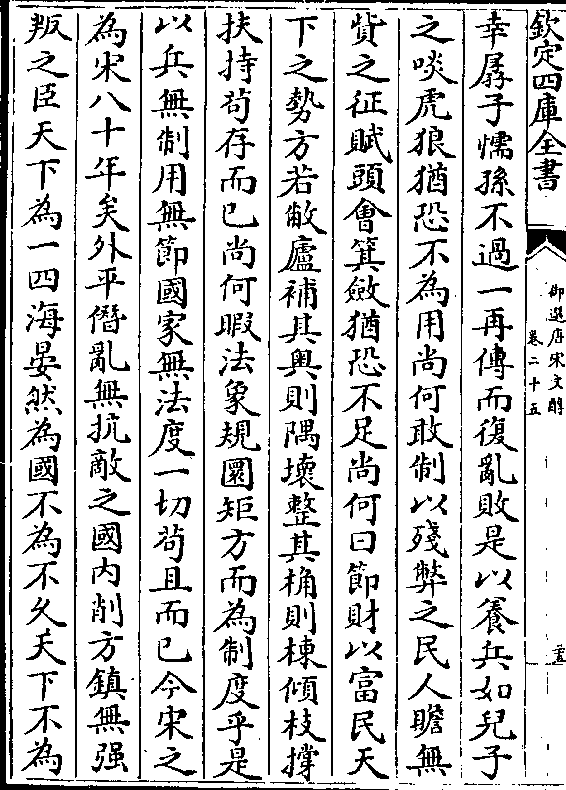 欽定四庫全書
御選唐宋文醇
卷二十五
幸孱子懦孫不過一再傳而復亂敗是以養兵如兒子
之啖虎狼猶恐不為用尚何敢制以殘弊之民人贍無
貲之征賦頭會箕斂猶恐不足尚何曰節財以富民天
下之勢方若敝廬補其奧則隅壞整其桷則棟傾枝撐
扶持茍存而已尚何暇法象規圜矩方而為制度乎是
以兵無制用無節國家無法度一切茍且而已今宋之
為宋八十年矣外平僭亂無抗敵之國內削方鎮無强
叛之臣天下為一四海晏然為國不為不久天下不為